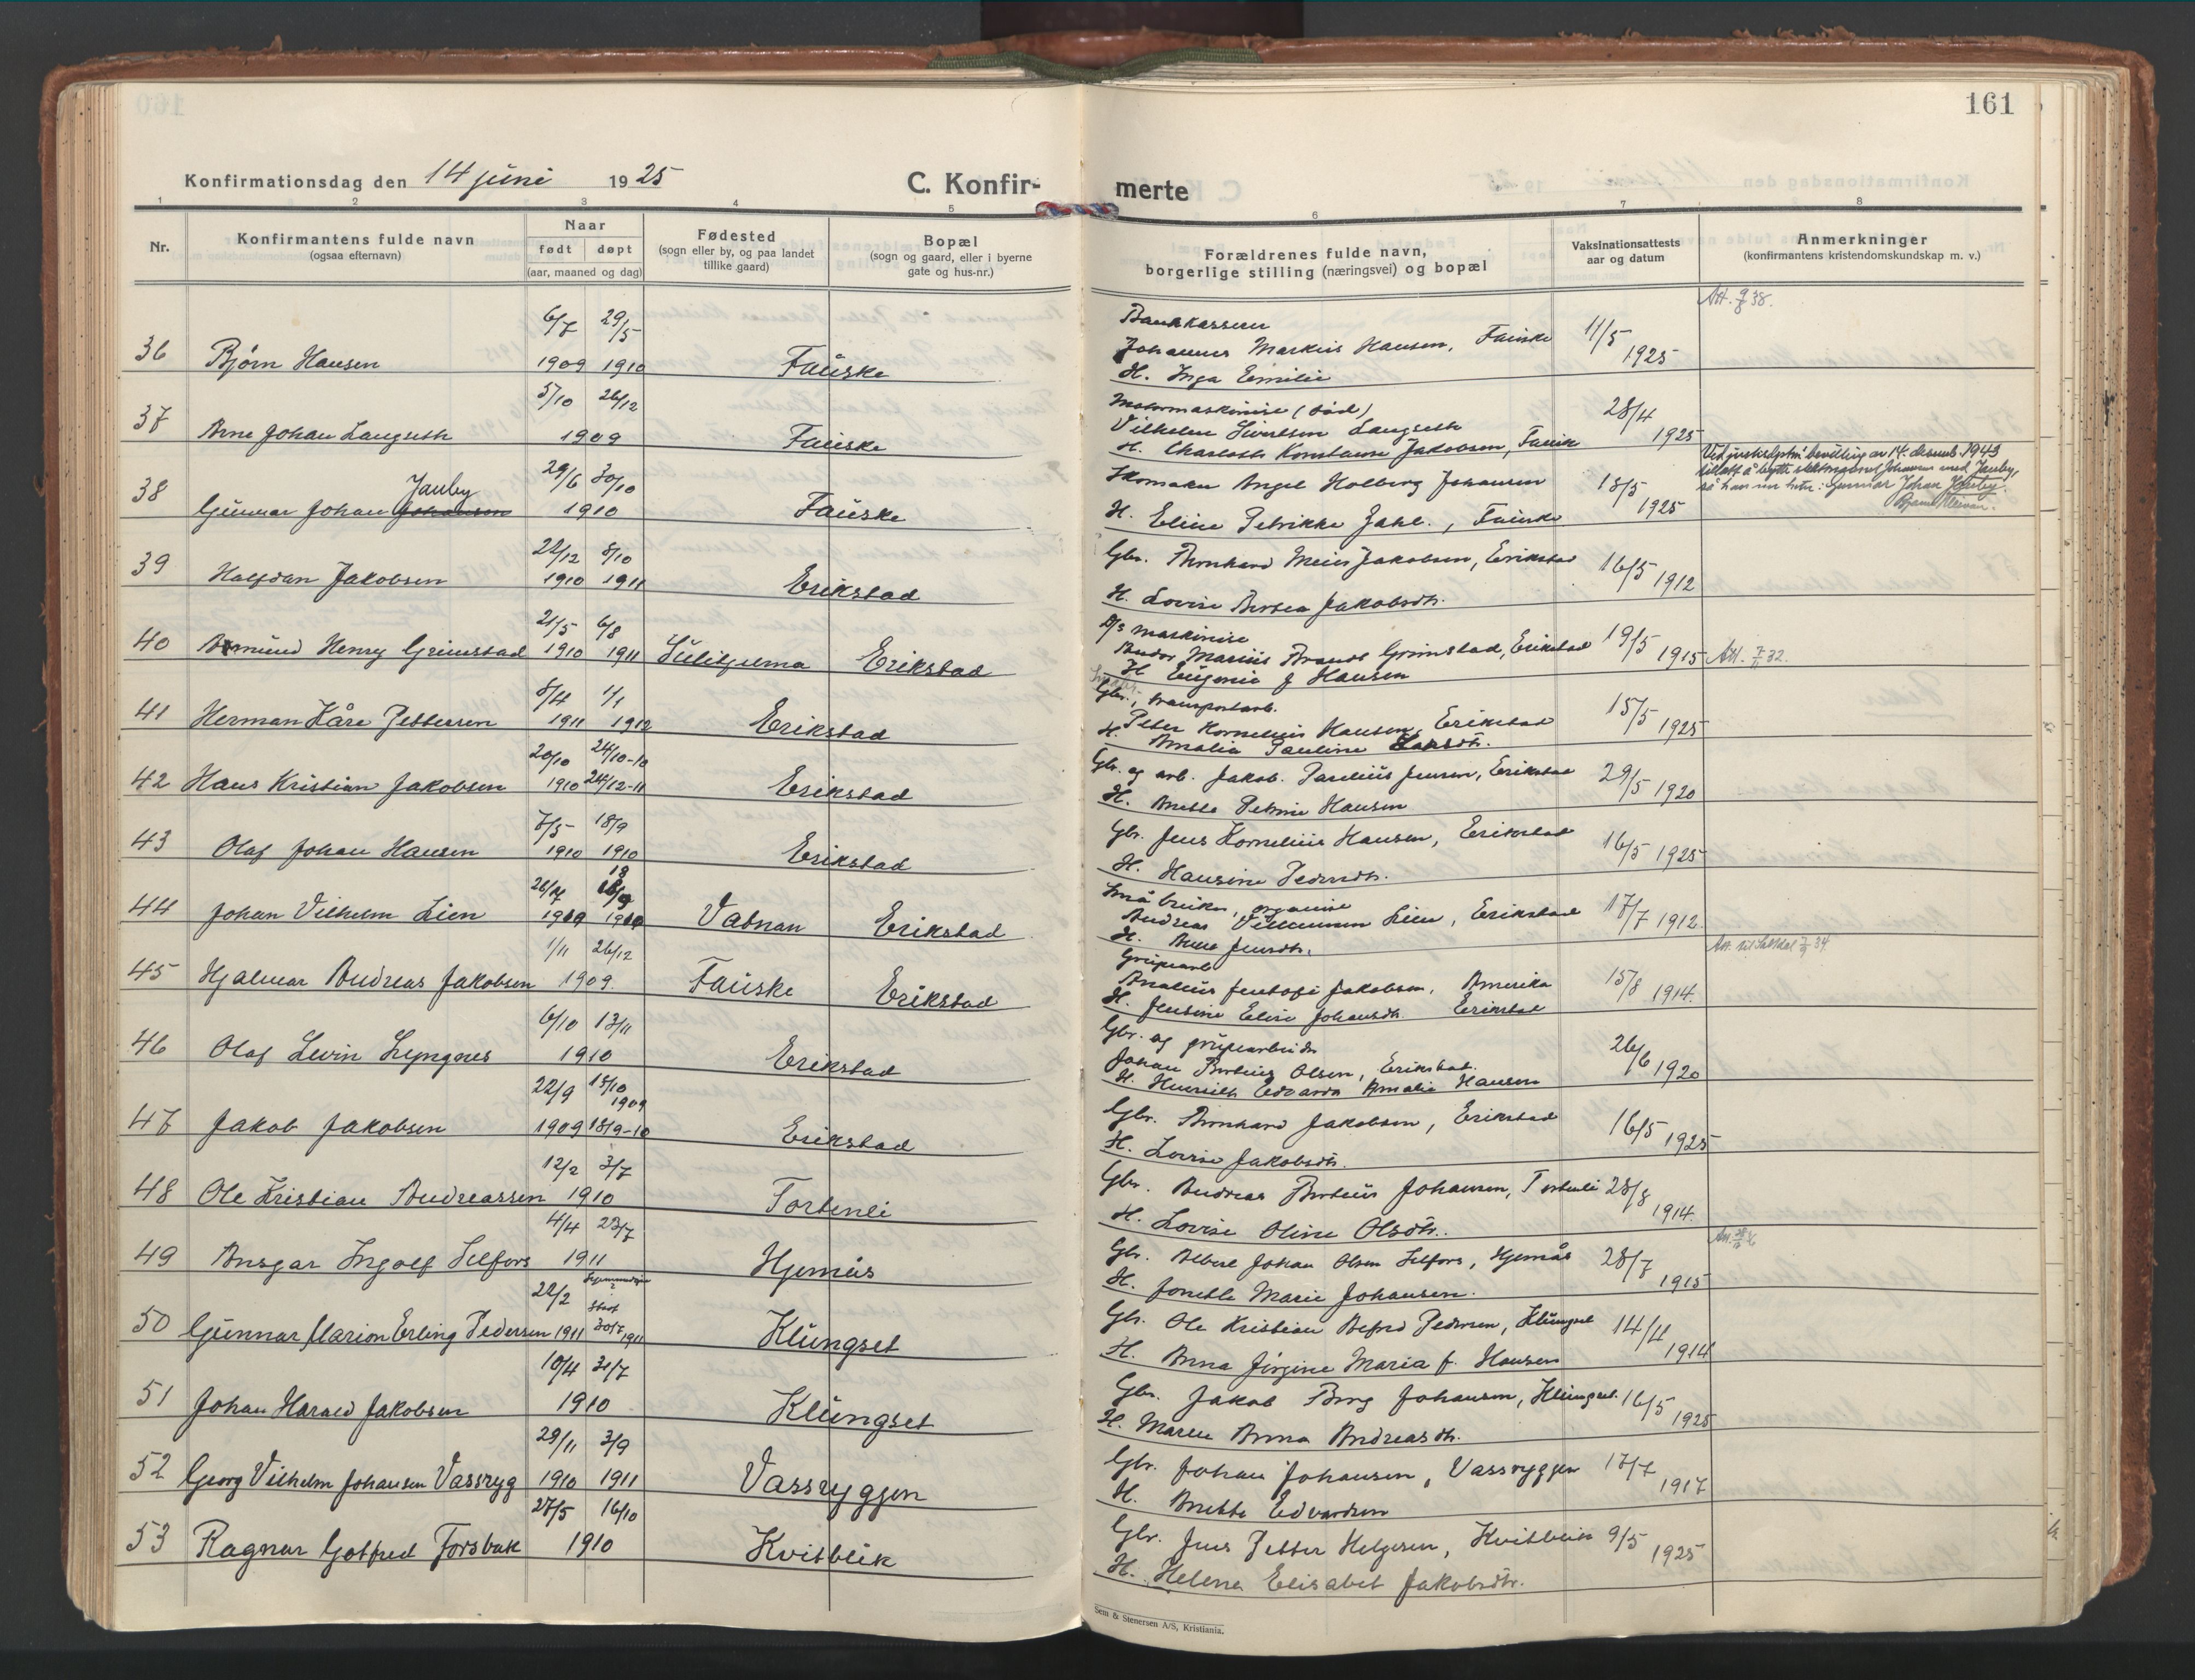 161
Konfirmationsdag den 14 juni 1925
C. Konfir-
merte
1 2 3 4 5 6 7 8
Nr.
Konfirmantens fulde navn
(ogsaa efternavn)
Naar
født døpt
(aar, maaned og dag)
Fødested
(sogn eller by, og paa landet
tillike gaard)
Bopæl
(sogn og gaard, eller i byerne
gate og hus-nr.)
Forældrenes fulde navn,
borgerlige stilling (næringsvei) og bopæl
Vaksinationsattests
aar og datum
Anmerkninger
(konfirmantens kristendomskundskap m. v.)
6/7 29/5
36 Bjørn Hansen 1909 1910 Fauske
Bankkasserer
Johannes Markus Hansen, Fauske
H. Inga Emilie
11/5 1925
5/10 26/12
37 Arne Johan Langseth 1909 Fauske
Motormaskinist (død)
Vilhelm Sivertsen Langseth
H. Charlotte Konstanse Jakobsen, Fauske
28/4 1925
29/6 30/10
Jauby
38 Gunnar Johan Johansen 1910 Fauske
Skomaker Angel Holberg Johansen
H. Eline Petrikke Jahl., Fauske
13/5 1925
bevilling av 14. desemb. 1943
tillatt å bytte slektsnavnet Johansen med Jauby,
så han nu heter: Gunnar Johan Jauby.
22/12 8/10
39 Halfdan Jakobsen 1910 1911 Erikstad
Gbr. Bernhard Meier Jakobsen, Erikstad
H. Lovise Bertea Jakobsdtr.
16/5 1912
21/5 6/8
40 Asmund Henry Grimstad 1910 1911 Sulitjelma Erikstad
maskinist
Peder Marius Brandt Grimstad, Erikstad
H Eugenie J Hansen
19/5 1915
Att. 7/32.
8/4 1/1
41 Herman Kåre Pettersen 1911 1912 Erikstad
Gbr., transportarb.
Peter Kornelius Hansen, Erikstad
H. Amalia Pauline Larsdtr.
15/5 1925
20/10 24/10-10
42 Hans Kristian Jakobsen 1910 24/12-11 Erikstad
Gbr. og arb. Jakob Parelius Jensen, Erikstad
H. Anette Petrine Hansen
29/5 1920
7/5 18/9
43 Olaf Johan Hansen 1910 1910 Erikstad
Gbr. Jens Kornelius Hansen, Erikstad
H. Hansine Pedersdtr.
16/5 1925
44 Johan Vilhelm Lien Vatnan Erikstad
Småbruker, organist
Andreas Villumsen Lien, Erikstad
H. Anne Jensdtr.
17/7 1912
1/11 26/12
45 Hjalmar Andreas Jakobsen 1909 Fauske Erikstad
Grubearb
Analius Jentoft Jakobsen, Amerika
H. Jensine Elise Johansdtr. Erikstad
15/8 1914.
6/10 13/11
46 Olaf Levin Lyngnes 1910 Erikstad
Gbr. og grubearbeider
Johan Bertius Olsen, Erikstad.
H. Henriette Edvarda Amalie Hansen
26/6 1920
22/9 15/10 1909
47 Jakob Jakobsen 1909 18/9-10 Erikstad
Gbr. Bernhard Jakobsen, Erikstad
H. Lovise Jakobsdtr.
16/5 1925
12/2 3/7
48 Ole Kristian Andreassen 1910 Tortenli
Gbr. Andreas Berteus Johansen, Tortenli
H. Lovise Oline Olsdtr.
28/8 1914.
4/4 23/7
49 Ansgar Ingolf Selfors 1911 Hjemås
Gbr. Albert Johan Olsen Selfors, Hjemås
H. Jonette Marie Johansen.
28/7 1915
22/2 Hjemmedøpt
50 Gunnar Marion Erling Pedersen 1911 30/7 1911 Klungset
Gbr. Ole Kristian Alfred Pedersen, Klungset
H. Anna Jørgine Maria f. Hansen
14/4 1914
10/4 31/7
51 Johan Harald Jakobsen 1910 Klungset
Gbr. Jakob Berg Johansen, Klungset.
H. Maren Anna Andreasdtr.
16/5 1925
29/11 3/9
52 Georg Vilhelm Johansen Vassryg 1910 1911 Vassryggen
Gbr. Johan Johansen, Vassryggen
H. Anette Edvardsen
17/7 1917
27/5 16/10
53 Ragnar Gotfred Forsbak 1910 Kvitblik
Gbr. Jens Petter Helgesen, Kvitblik
H. Helene Elisabet Jakobsdtr.
9/5 1925
Sem & Stenersen A/S, Kristiania.